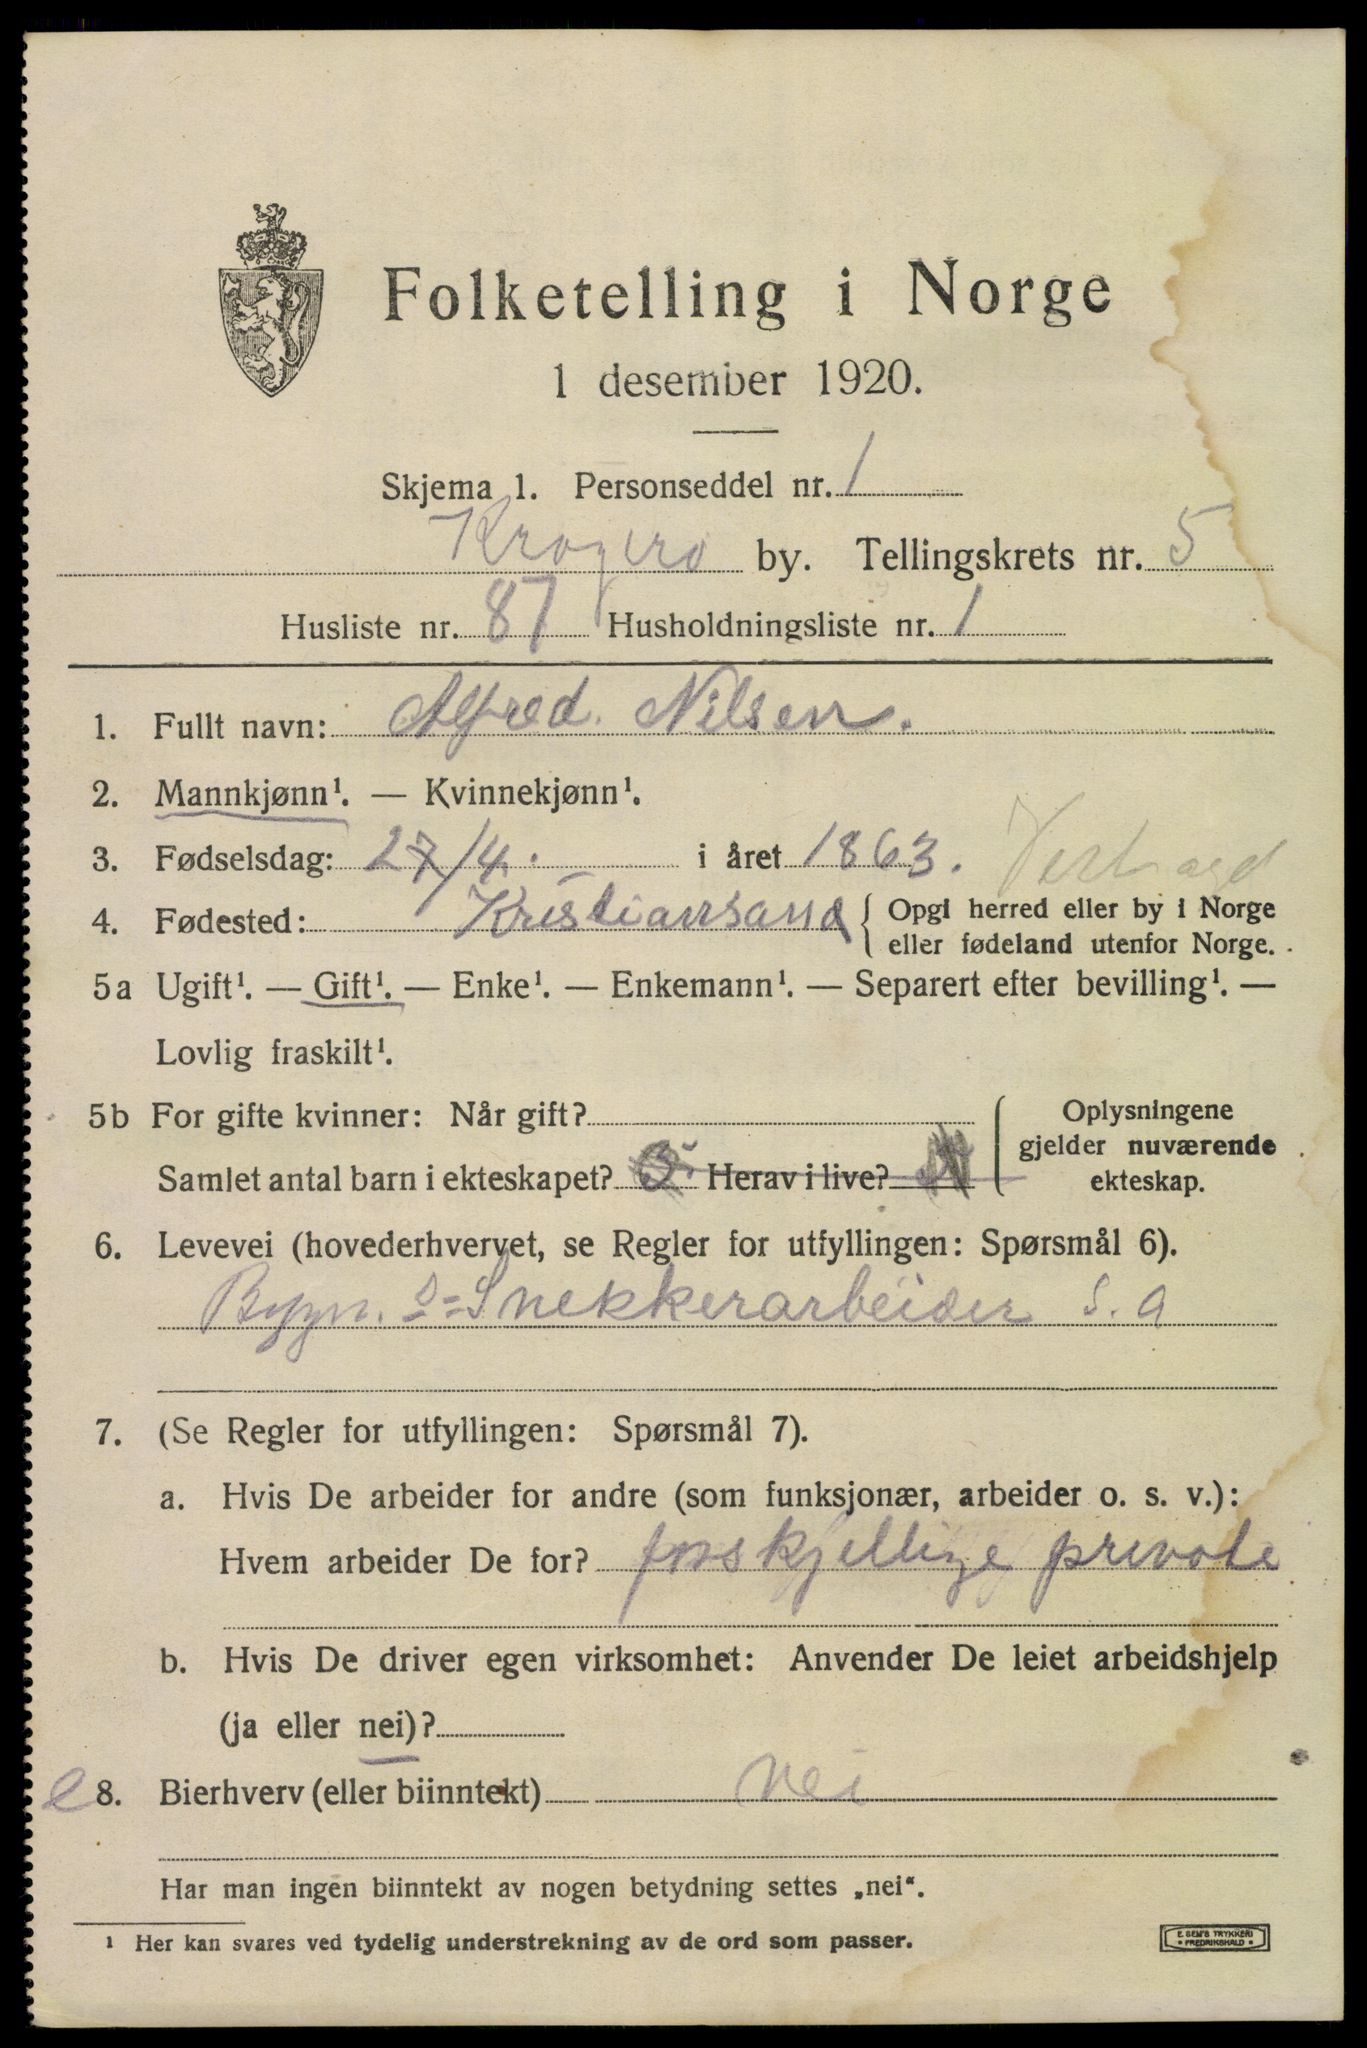 Folketelling i Norge
1 desember 1920.
Skjema 1. Personseddel nr. 1
Kragerø by. Tellingskrets nr. 5
Husliste nr. 87 Husholdningsliste nr. 1
1. Fullt navn: Alfred. Nilsen.
2. Mannkjønn¹. — Kvinnekjønn¹.
3. Fødselsdag: 27/4. i året 1863.
4. Fødested: Kristiansand { Opgi herred eller by i Norge
eller fødeland utenfor Norge.
5a Ugift¹. — Gift¹. — Enke¹. — Enkemann¹. — Separert efter bevilling¹. —
Lovlig fraskilt¹.
5b For gifte kvinner: Når gift?
Samlet antal barn i ekteskapet? Herav i live?
{ Oplysningene
gjelder nuværende
ekteskap.
6. Levevei (hovederhvervet, se Regler for utfyllingen: Spørsmål 6).
Bygn. &= Snekkerarbeider S. a
7. (Se Regler for utfyllingen: Spørsmål 7).
a. Hvis De arbeider for andre (som funksjonær, arbeider o. s. v.):
Hvem arbeider De for? forskjellige private
b. Hvis De driver egen virksomhet: Anvender De leiet arbeidshjelp
(ja eller nei)?
e 8. Bierhverv (eller biinntekt) nei
Har man ingen biinntekt av nogen betydning settes „nei“.
¹ Her kan svares ved tydelig understrekning av de ord som passer.
E SEM'S TRYKKERI
• FREDRIKSHALD •